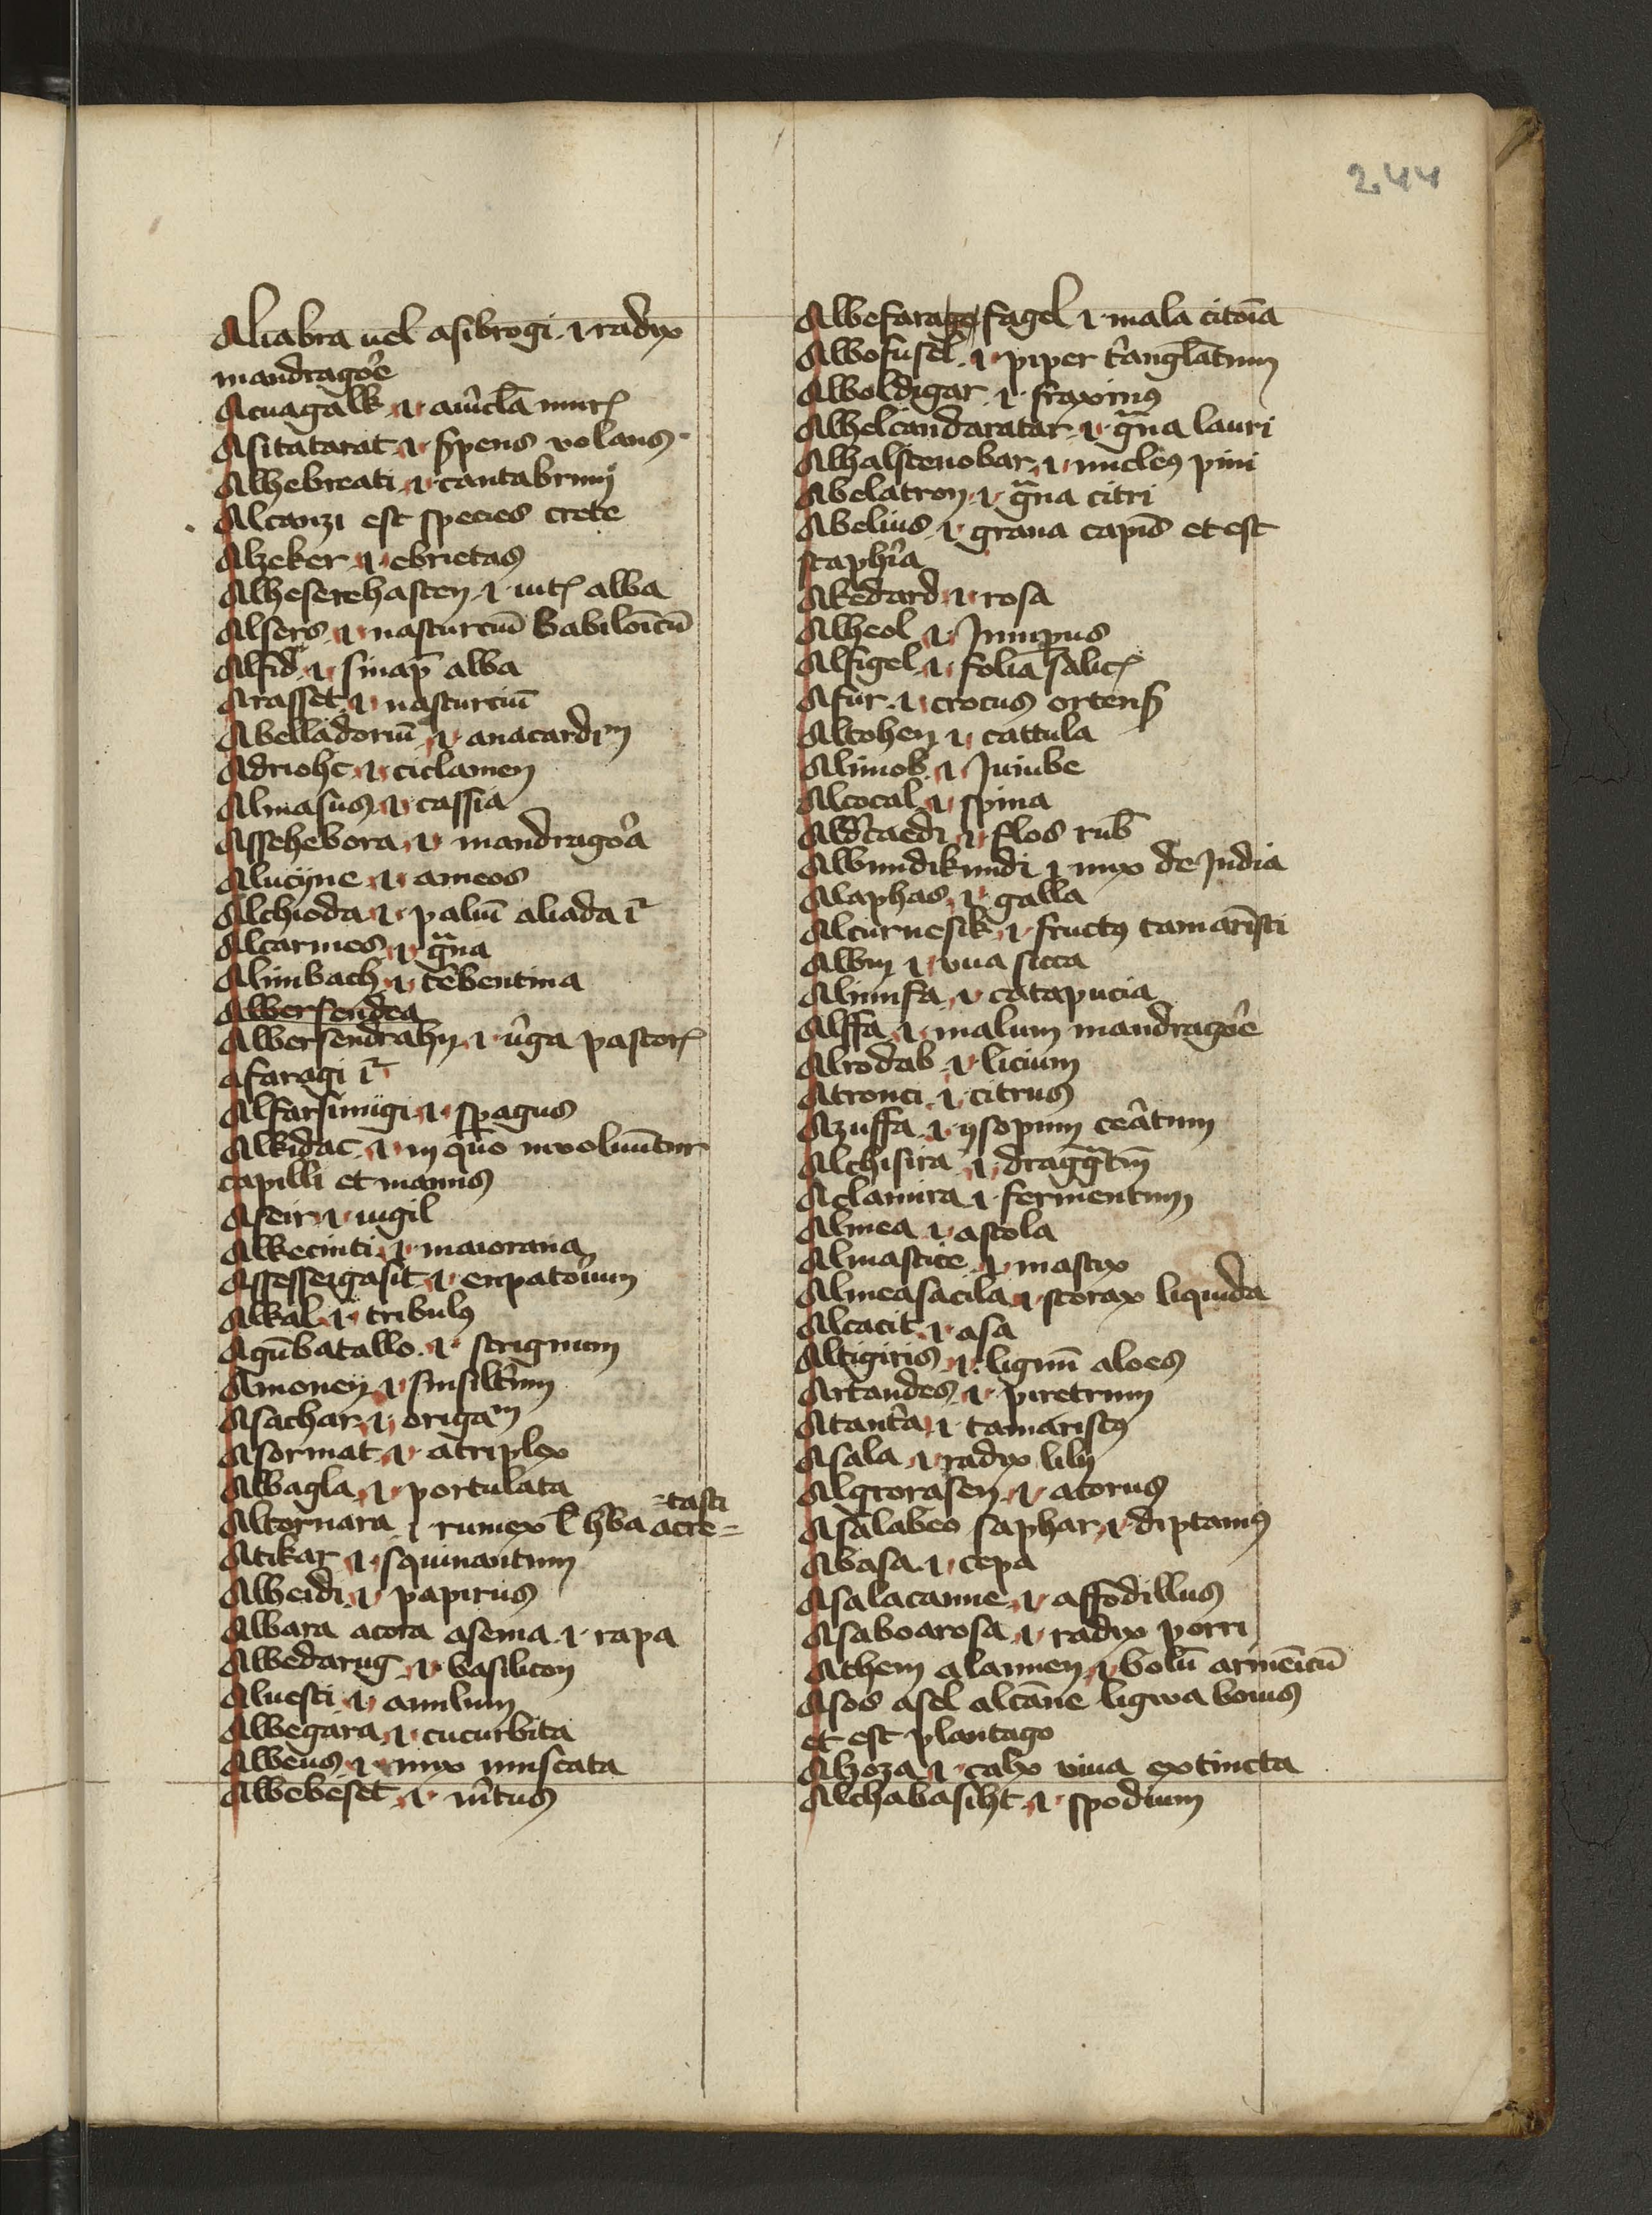 244
Aliabra uel asibrogi .i. radix
mandragore
Acuagalk .i. auricla muris
Asitatarat .i. serpens volans
Alhebreati .i. cantabrum
Alcanzi est species crete
Alzeker .i. ebrietas
Alheserehasten .i. uitis alba
Alsers .i. nasturcium Babilonicum
Alfid .i. sinapis alba
Arasset .i. nasturcium
Abelladorium .i. anacardium
Adriohc .i. ciclamen
Almasus .i. cassia
Assehebora .i. mandragora
Alucijne .i. ameos
Alchioda .i. aliada
Alcarmes .i. grana
Alimbach .i. terbentina
Albersendea
Albersendrahn .i. uirga pastoris
afaragi
Alfarsimigi .i. spagus
Alkidac .i. in quo inuoluuntur
capilli et manus
Aseir .i. uigil
Alkecinti .i. maiorana
Assesseigasit .i. eupatorium
Alkal .i. tribulus
Agumbatallo .i. strignum
Amoneij .i. sinsiltrum
Asachar .i. origanum
Asormat .i. atriplex
Albagla .i. portulata
=tasti
Altornara .i. rumex uel herba acre=
Atikar .i. squinantum
Alheidi .i. papirus
Albara acora asema .i. rapa
Albedarug .i. basilicon
Aluesti .i. amilum
Albegara .i. cucurbita
Albeus .i. nux muscata
Albebeset .i. mirtus
Albefarago fagel .i. mala citonia
Albofusel .i. piper triangulatum
Alboldigar .i. fraxinus
Alhelcandaratar .i. grana lauri
Alhalstenobar .i. nucleus pini
Abelatron .i. grana citri
Abelius .i. grana capitis et est
staphisagria
Akedard .i. rosa
Alheol .i. Iuniperus
Alfigel .i. folia salicis
Afur .i. crocus ortensis
Altohen .i. cattula
Alimob .i. Iuiube
Alcocal .i. spina
flos rub
Albundikundi .i. nux de India
Alaphas .i. galla
Alcurnesik .i. fructus tamaristi
Albin .i. vua sicca
Alimifa .i. catapucia
Alffa .i. malum mandragore
Alrodab .i. licium
Atronci .i. citrus
Azuffa .i. ysopum ceratum
Alchisira .i. draggantum
Aclamira .i. fermentum
Almea .i. astola
Almastice .i. mastix
Almeasacila .i. storax liquida
Alcacit .i. asa
Altigiris .i. lignum aloes
Artandes .i. piretrum
Atantra .i. tamariscus
Asala .i. radix lilij
Algrorasen .i. acorus
Asalabeo saphar .i. diptamus
Abasa .i. cepa
Asalacanne .i. affodillus
Asaboarosa .i. radix porri
Athem alannen .i. bolum armenicum
Asos asel alcanne ligwa bouis
et est plantago
Alzoza .i. calx viua extincta
Alchabasiht .i. spodium